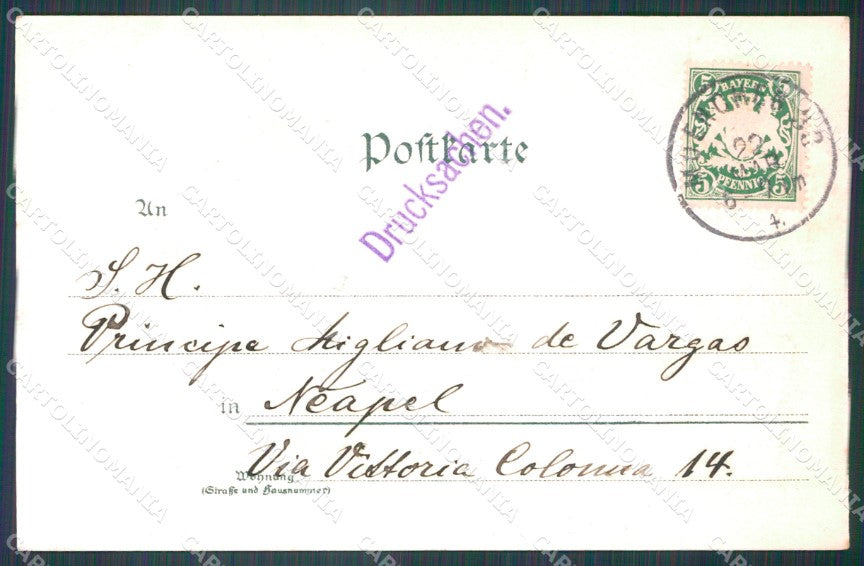 5 BAYERN 5
5 PFENNIG 5
22
MAR
Postkarte
Drucksachen.
An
S. H.
Principe Migliano de Vargas
in Neapel
Via Vittoria Colonna 14.
Wohnung
(Straße und Hausnummer)
CARTOLINOMANIA